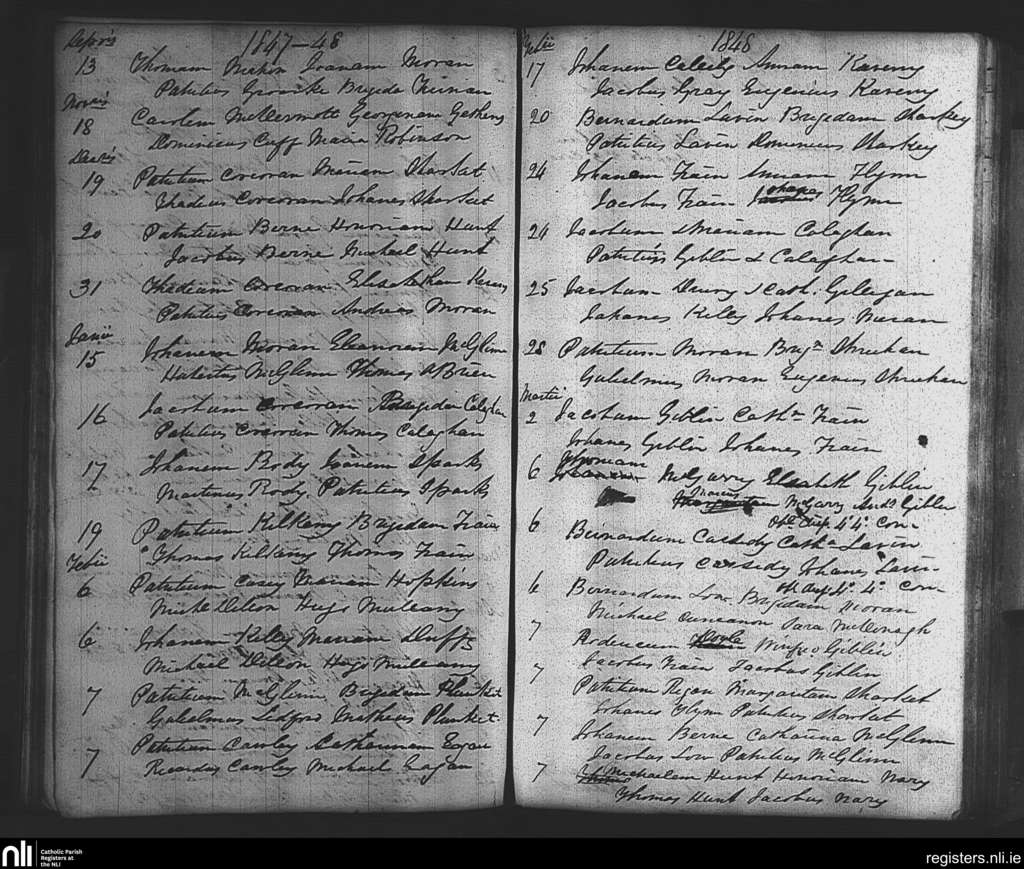 1847-48
13 Thomam Joanam Moran
Patritius Brigida
18 Carolum McDermott Georginam
Dominicus Cuff Maria Robinson
19 Patritium Corcoran Mariam Sharket
Thadeus Corcoran Johanes Sharket
20 Patritium Berne Honoriam Hunt
Jacobus Berne Michael Hunt
31 Thadeum Corcoran
Patritius Corcoran Andreas Moran
15 Johanem Moran Eleanorem McGlinn
Hubertus McGlinn Thomas OBrien
16 Jacobum Corcoran Brigidam Calaghan
Patritius Corcoran Thomas Calaghan
17 Johanem Rody Sparks
Martinus Rody Patritius Sparks
19 Patritium Kilkeny Brigidam Frain
Thomas Kilkeny Thomas Frain
6 Patritium Casey Mariam Hopkins
Dillon Hugo Mulleany
6 Johanem Kelly Mariam Duffy
Michael Dillon Hugo Mulleany
7 Patritium McGlinn Brigidam Plunket
Gulielmus Matheus Plunket
7 Patritium Cawley Eagan
Ricardus Cawley Michael Eagan
1848
17 Johanem Annam Kaveny
Jacobus Gray Eugenius Kaveny
20 Bernardum Lavin Brigidam Sharkey
Patritius Lavin Dominicus Sharkey
24 Johanem Frain Annam Flynn
Jacobus Frain Johanes Flynn
24 Jacobum Mariam Calaghan
Patritius Giblin & Calaghan
25 Jacobum Drury & Cath. Gilligan
Johanes Kelly Johanes
28 Patritium Moran Brigm Sheehan
Gulielmus Moran Eugenius Sheehan
Martii
2 Jacobum Giblin Cathn Frain
Johanes Giblin Johanes Frain
6 McGarry Elizabeth Giblin
McGarry Ands Giblin
4º 4º Con-
6 Bernardum Cassedy Catha Lavin
Patritius Cassedy Johanes Lavin
4º 4º Con-
6 Bernardum Low Brigidam Moran
Michael Sara McDonagh
7 Giblin
Jacobus Frain Jacobus Giblin
7 Patritium Regan Margaritam Sharket
Johanes Flynn Patritius Sharket
7 Johanem Berne Catharina McGlinn
Jacobus Low Patritius McGlinn
7 Michaelem Hunt Honoriam Nary
Thomas Hunt Jacobus Nary
nli Catholic Parish
Registers at
the NLI
registers.nli.ie